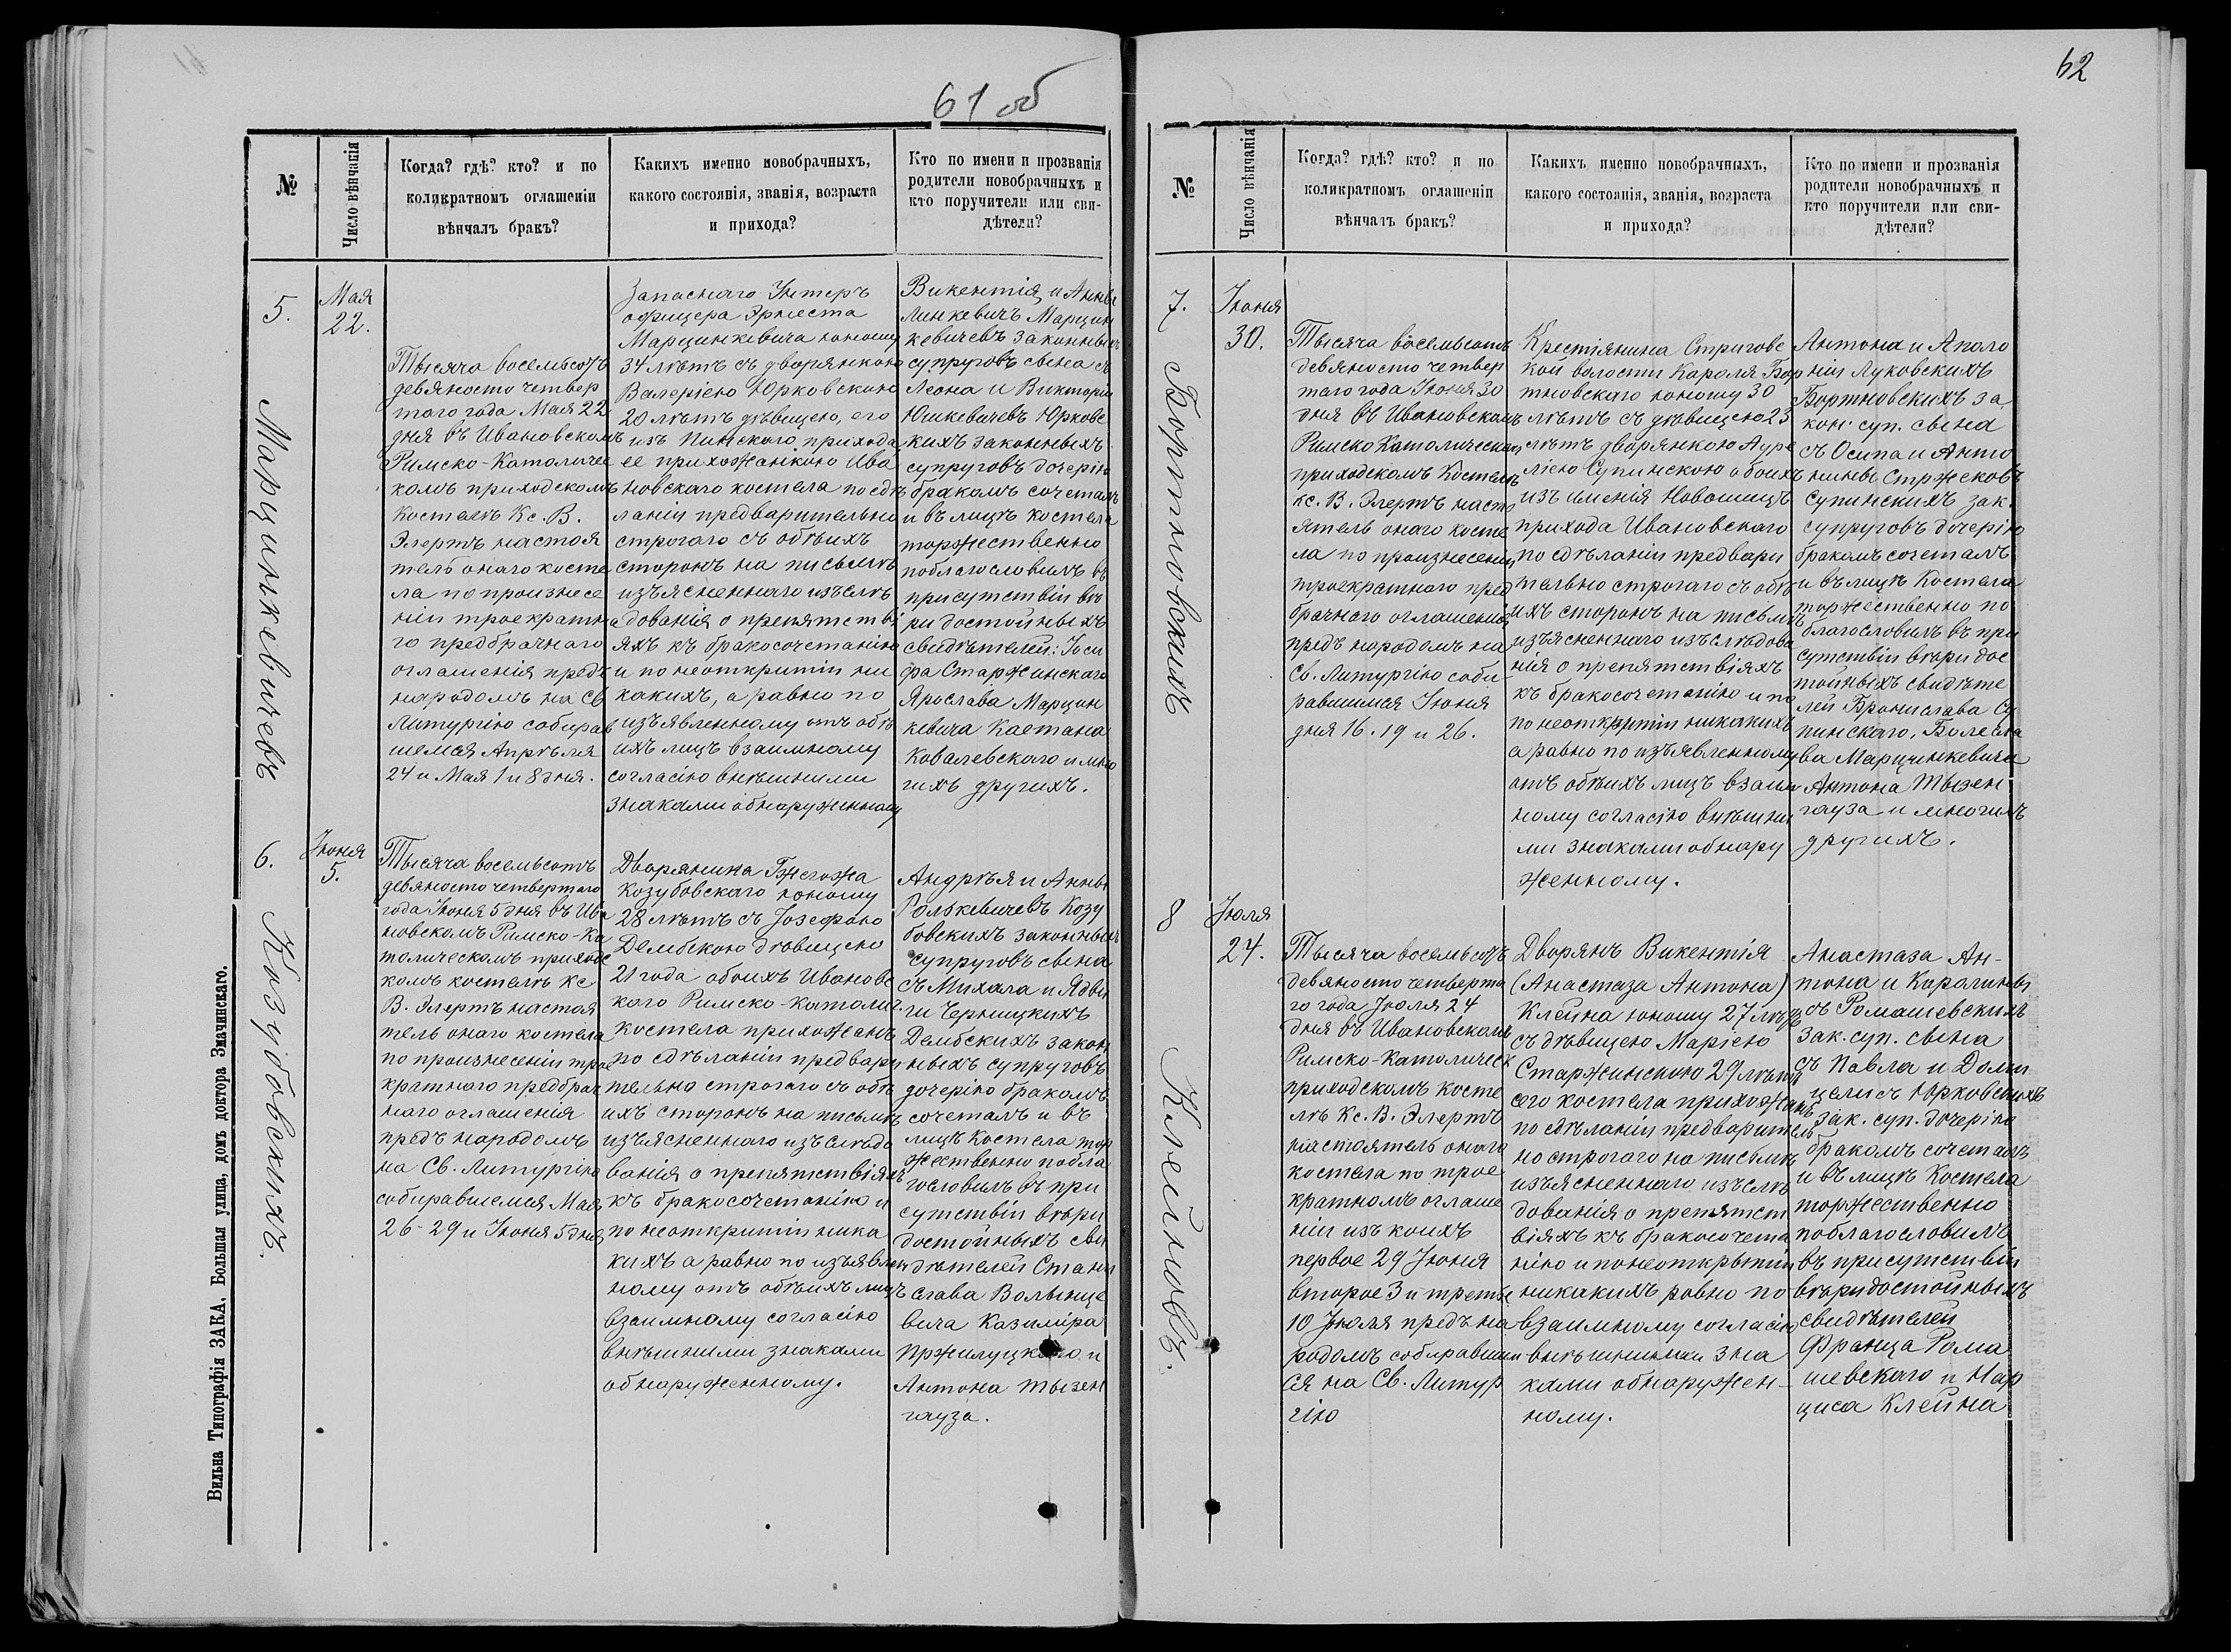 61 об
№
Число вѣнчанія
Когда? гдѣ? кто? и по
коликратномъ оглашеніи
вѣнчалъ бракъ?
Какихъ именно новобрачныхъ,
какого состоянія, званія, возраста
и прихода?
Кто по имени и прозванія
родители новобрачныхъ и
кто поручители или сви-
дѣтели?
5.
Марцинкевичевъ
Мая
22.
Тысяча восемьсотъ
девяносто четвер
таго года Мая 22
дня въ Ивановскомъ
Римско-Католичес
комъ приходскомъ
Костелѣ Кс. В.
Элертъ настоя
тель онаго косте
ла по произнесе
ніи троекратна
го предбрачнаго
оглашенія предъ
народомъ на Св
Литургію собирав
шемся Апрѣля
24 и Мая 1 и 8 дня.
Запаснаго Унтеръ
офицера Эрнеста
Марцинкевича юношу
34 лѣтъ съ дворянкою
Валеріею Юрковскою
20 лѣтъ дѣвицею, его
изъ Пинскаго прихода
ее прихожанкою Ива
новскаго костела по сдѣ
ланіи предварительно
строгаго съ обѣихъ
сторонъ на письмѣ
изъясненнаго изслѣ
дованія о препятстві
яхъ къ бракосочетанію
и по неоткрытіи ни
какихъ, а равно по
изъявленному отъ обѣ
ихъ лицъ взаимному
согласію внѣшними
знаками обнаруженному
Викентія и Анны
Линкевичъ Марцин
кевичевъ законныхъ
супруговъ сына съ
Леона и Викторіи
Юшкевичевъ Юрковс
кихъ законныхъ
супруговъ дочерію
бракомъ сочеталъ
и въ лицѣ костела
торжественно
поблагословилъ въ
присутствіи вѣ
ри достойныхъ
свидѣтелей: Іоси
фа Старжинскаго
Ярослава Марцин
кевича Каетана
Ковалевскаго и мно
гихъ другихъ.
6.
Козубовскихъ.
Іюня
5.
Тысяча восемьсотъ
девяносто четвертаго
года Іюня 5 дня въ Ива
новскомъ Римско-Ка
толическомъ приходс
комъ костелѣ Кс
В. Элертъ настоя
тель онаго костела
по произнесеніи трое
кратнаго предбрач
наго оглашенія
предъ народомъ
на Св. Литургію
собиравшемся Мая
26-29 и Іюня 5 дня
Дворянина Гжегожа
Козубовскаго юношу
28 лѣтъ съ Іозефою
Дембскою дѣвицею
21 года обоихъ Ивановс
каго Римско-католич.
костела прихожанъ
по сдѣланіи предвари
тельно строгаго съ обѣ
ихъ сторонъ на письмѣ
изъясненнаго изъслѣдо
ванія о препятствіяхъ
къ бракосочетанію и
по неоткрытіи ника
кихъ а равно по изъявлен
ному отъ обѣихъ лицъ
взаимному согласію
внѣшними знаками
обнаруженному.
Андрѣя и Анны
Голькевичевъ Козу
бовскихъ законныхъ
супруговъ сына
съ Михала и Ядви
ги Черницкихъ
Дембскихъ закон
ныхъ супруговъ
дочерію бракомъ
сочеталъ и въ
лицѣ Костела тор
жественно побла
гословилъ въ при
сутствіи вѣри
достойныхъ сви
дѣтелей Стани
слава Волынце
вича Казиміра
Пржилуцкаго и
Антона Тызен
гауза.
Вильна Типографія ЗАКА, Большая улица, домъ доктора Змачинскаго.
62
№
Число вѣнчанія
Когда? гдѣ? кто? и по
коликратномъ оглашеніи
вѣнчалъ бракъ?
Какихъ именно новобрачныхъ,
какого состоянія, званія, возраста
и прихода?
Кто по имени и прозванія
родители новобрачныхъ и
кто поручители или сви-
дѣтели?
7.
Бортновскихъ
Іюня
30.
Тысяча восемьсотъ
девяносто четвер
таго года Іюня 30
дня въ Ивановскомъ
Римско Католическомъ
приходскомъ Костелѣ
Кс. В. Элертъ насто
ятель онаго косте
ла по произнесеніи
троекратнаго пред
брачнаго оглашенія
предъ народомъ на
Св. Литургію соби-
равшимся Іюня
дня 16. 19 и 26.
Крестіянина Стриговс
кой волости Кароля Бор
тновскаго юношу 30
лѣтъ съ дѣвицею 23
лѣтъ дворянкою Ауре
ліею Супинскою обоихъ
изъ имѣнія Новошицъ
прихода Ивановскаго
по сдѣланіи предвари
тельно строгаго съ обѣ
ихъ сторонъ на письмѣ
изъясненнаго изъслѣдова
нія о препятствіяхъ
къ бракосочетанію и по
по неоткрытіи никакихъ
а равно по изъявленному
отъ обѣихъ лицъ взаим
ному согласію внѣшни
ми знаками обнару
женному.
Антона и Аполо
ніи Луковскихъ
Бортновскихъ за
кон. суп. сына
съ Осипа и Анто
нины Стржесковъ
Супинскихъ зак.
супруговъ дочерію
бракомъ сочеталъ
и въ лицѣ Костела
торжественно по
благословилъ въ при
сутствіи вѣри дос
тойныхъ свидѣте
лей Бронислава Су
пинскаго, Болесла
ва Марцинкевича
Антона Тызен
гауза и многихъ
другихъ.
8
Клейновъ.
Іюля
24.
Тысяча восемьсотъ
девяносто четверта
го года Іюля 24
дня въ Ивановскомъ
Римско-Католичесъ
приходскомъ косте
лѣ Кс. В. Элертъ
настоятель онаго
костела по трое
кратномъ оглаше
ніи изъ коихъ
первое 29 Іюня
второе 3 и третье
10 Іюля предъ на
родомъ собиравшим
ся на Св. Литур
гію
Дворянъ Викентія
(Анастаза Антона)
Клейна юношу 27 лѣтъ
съ дѣвицею Маріею
Старжинскою 29 лѣтъ
сего костела прихожанъ
по сдѣланіи предваритель
но строгаго на письмѣ
изъясненнаго изъслѣ
дованія о препятст
віяхъ къ бракосочета
нію и по неоткрытіи
никакихъ равно по
взаимному согласію
внѣшними зна
ками обнаружен-
ному.
Анастаза Ан-
тона и Каролины
съ Ромашевскихъ
зак. суп. сына
съ Павла и Доми
цели съ Юрковскихъ
зак. суп. дочерію
бракомъ сочеталъ
и въ лицѣ Костела
торжественно
поблагословилъ
въ присутствіи
вѣри достойныхъ
свидѣтелей
Франца Рома
шевскаго и Нар
циса Клейна